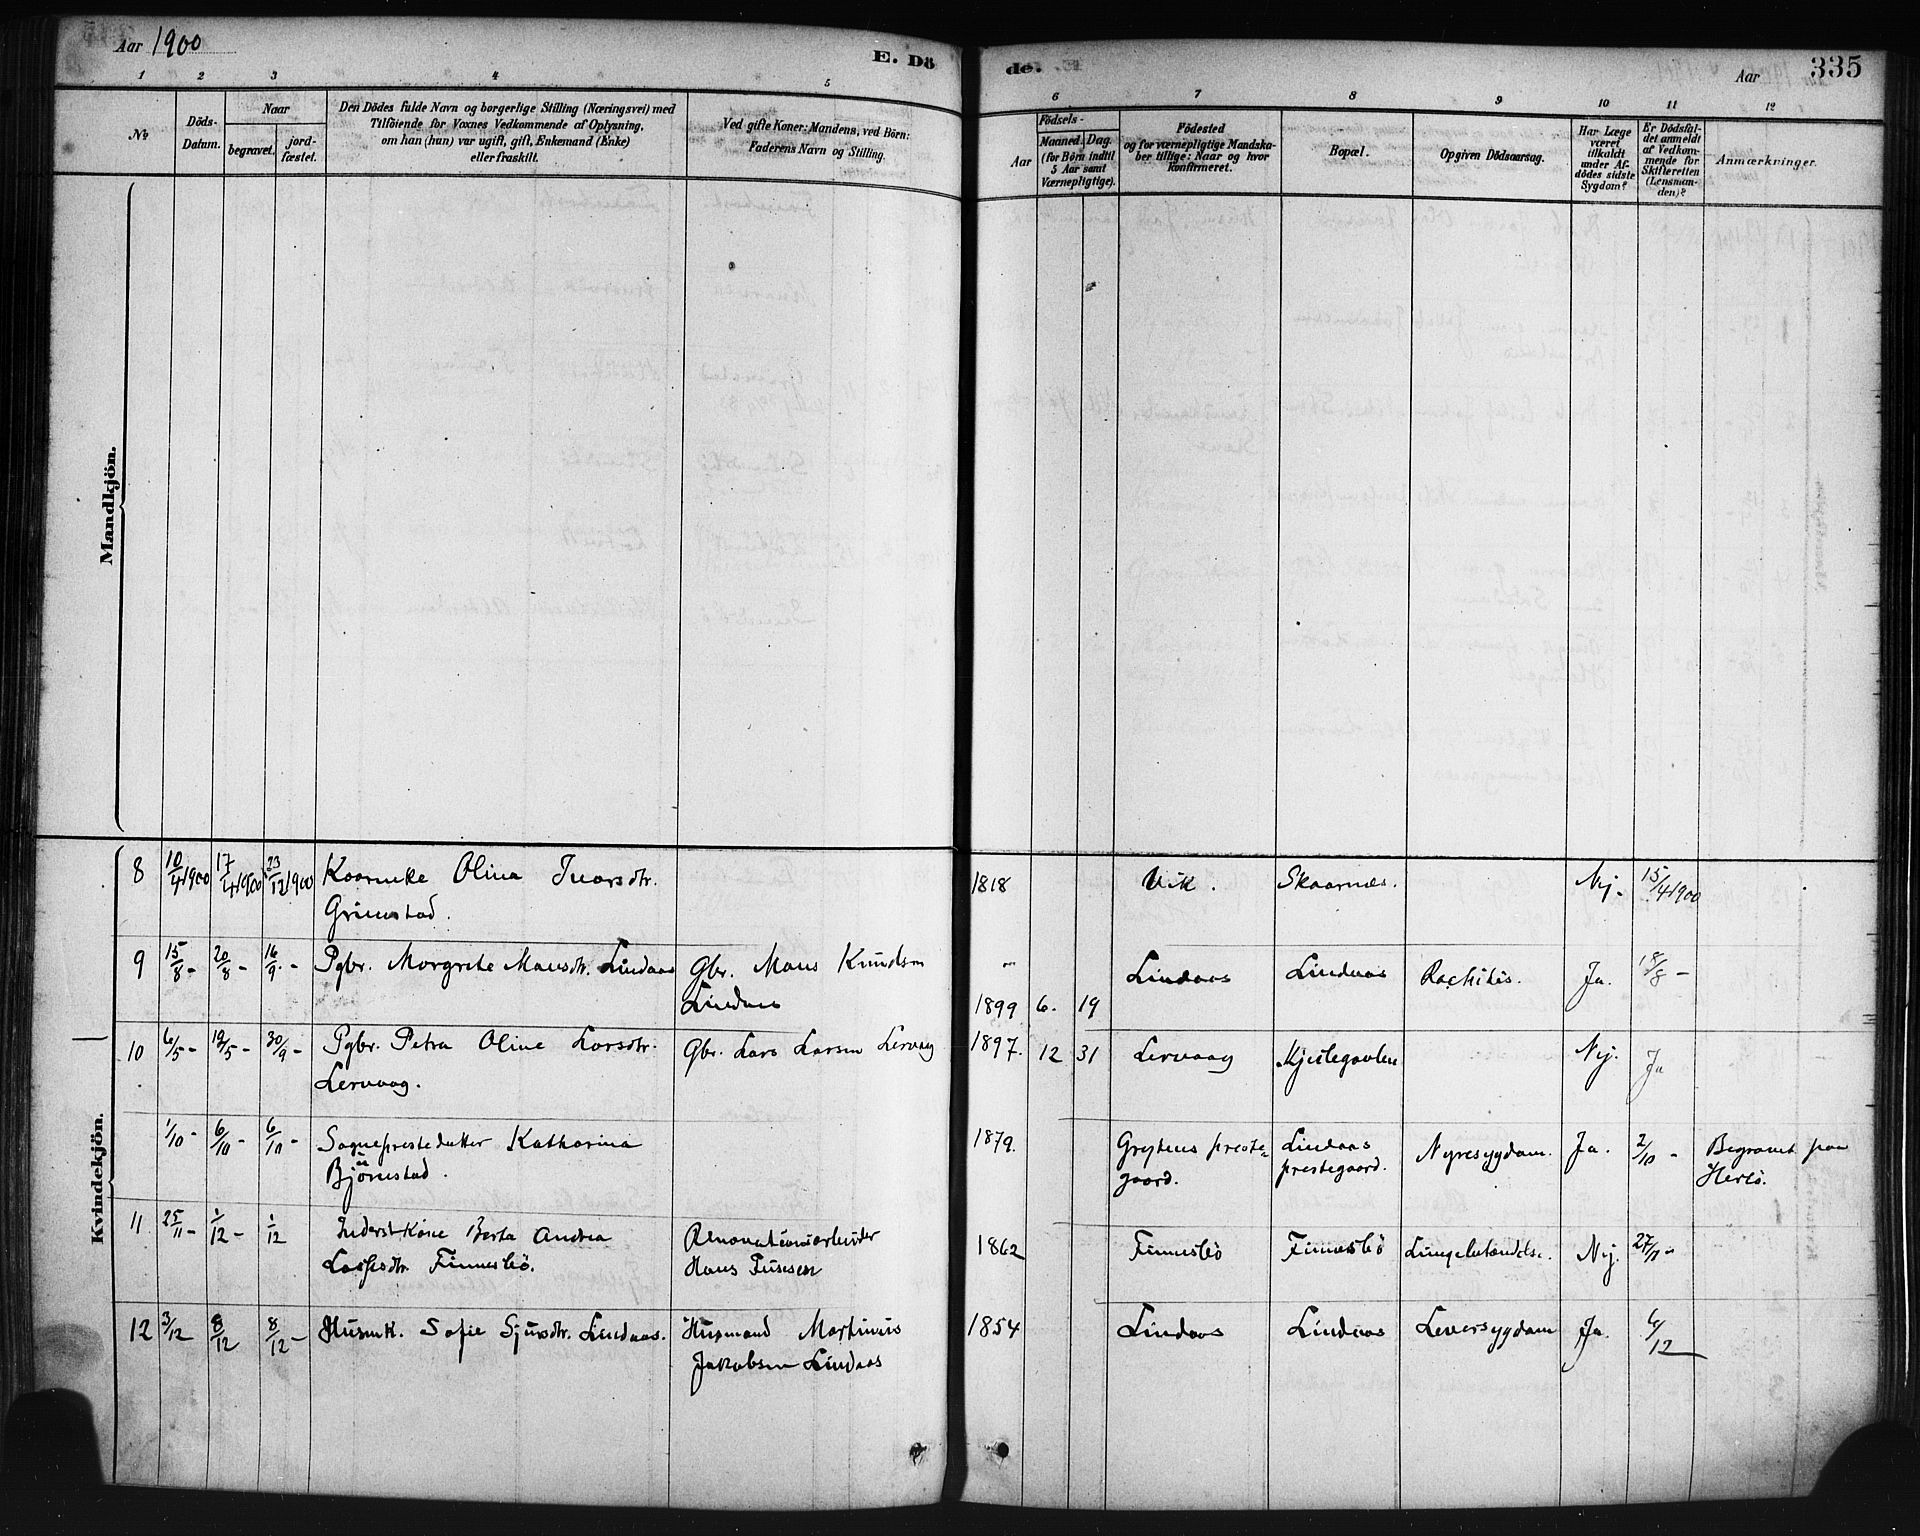 Aar 1900
E. Dö
de.
Aar
335
1 2 3 4 5 6 7 8 9 10 11 12
No
Döds-
Datum.
Naar
begravet.
jord-
fæstet.
Den Dödes fulde Navn og borgerlige Stilling (Næringsvei) med
Tilföiende for Voxnes Vedkommende af Oplysning,
om han (hun) var ugift, gift, Enkemand (Enke)
eller fraskilt.
Ved gifte Koner: Mandens, ved Börn:
Faderens Navn og Stilling.
Födsels-
Aar
Maaned. Dag.
(for Börn indtil
5 Aar samt
Værnepligtige).
Födested
og for værnepligtige Mandska-
ber tillige: Naar og hvor
konfirmeret.
Bopæl.
Opgiven Dödsaarsag.
Har Læge
været
tilkaldt
under Af-
dödes sidste
Sygdom?
Er Dödsfal-
det anmeldt
af Vedkom-
mende for
Skifteretten
(Lensman-
den)?
Anmærkninger.
Mandkjön.
Kvindekjön.
8 10/4 1900 17/4 1900 23/12 1900 Kaarmke Olina Ivarsdtr. 1818 Vik. Skaarnes. Nej. 15/4 1900
Grimstad.
9 15/8 - 20/8 - 16/9 - Pgbr. Margrete Mansdtr. Lindaas Gbr. Mans Knudsen Lindaas Lindaas Rachitis. Ja. 18/8 -
Lindaas 1899 6. 19
10 6/5 - 12/5 - 30/9 - Pgbr. Petra Oline Larsdtr. Gbr. Lars Larsen Lervaag 1897. 12 31 Lervaag Kjeilegavlen Nej. Ja
Lervaag.
1/10 - 6/10 - 6/10 - Sogneprestedatter Katharina 1879. Grytens preste- Lindaas Nyresygdam. Ja. 2/10 - Begravet paa
Björnestad. gaard. prestegaard. Herlö.
11 25/11 - 1/12 - 1/12 Inderst Kone Berta Andrea Renovationsarbeider 1862 Finnesbö Finnesbö Lungebetændelse. Nej. 27/11 -
Lassesdtr. Finnesbö. Hans Tuesen
12 3/12 8/12 8/12 - Husmk. Sofie Sjursdtr. Lindaas. Husmand Martinus 1854 Lindaas Lindaas Leversygdam Ja. 6/12
Jakobsen Lindaas